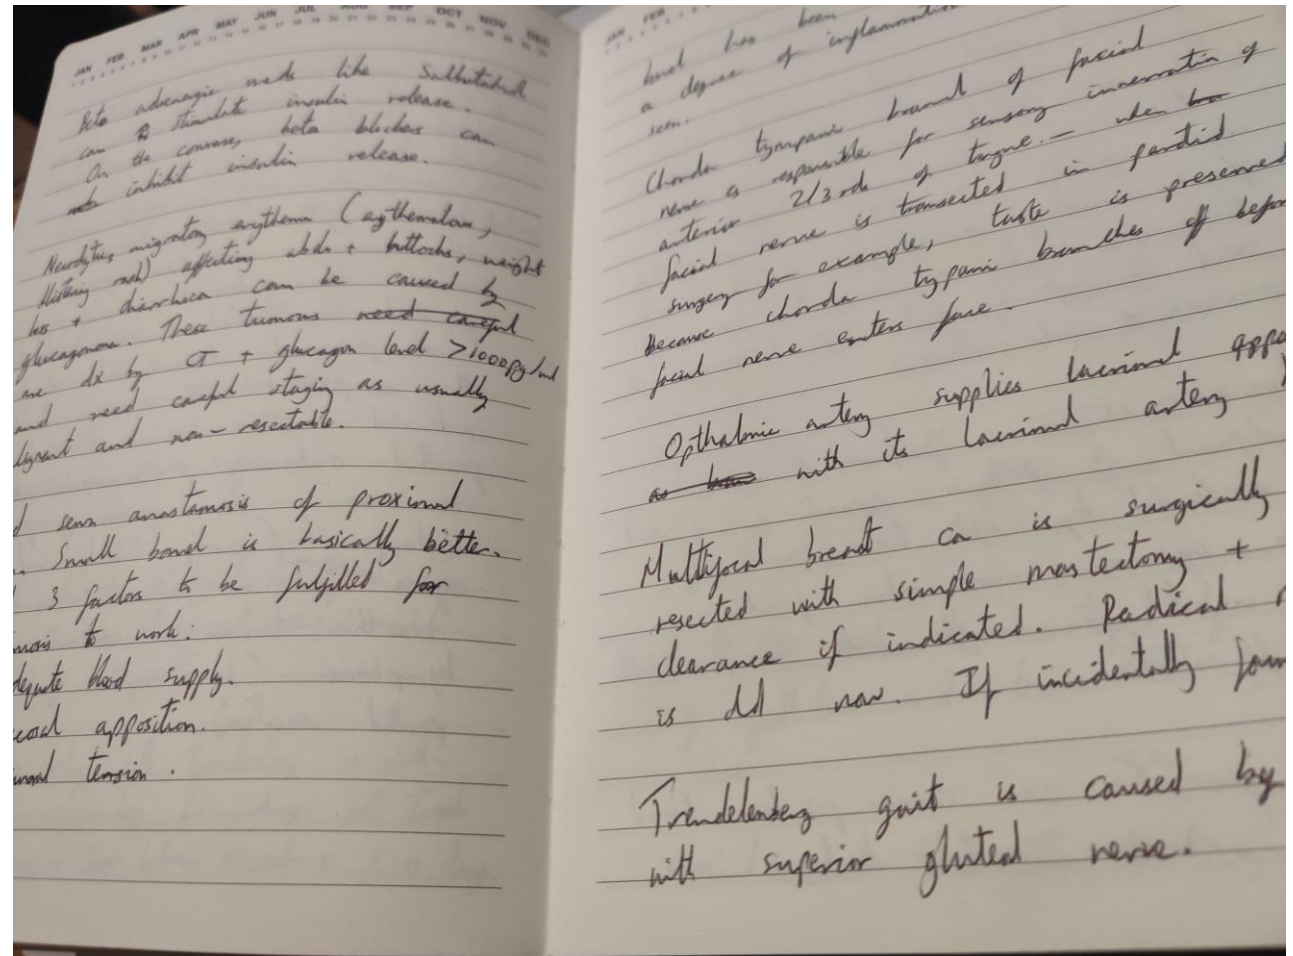 JAN FEB MAR APR MAY JUN JUL AUG SEP OCT NOV DEC
Beta adrenergic meds like Salbutamol
can stimulate insulin release.
On the converse, beta blockers can
inhibit insulin release.
migratory erythema (
blistering rash) affecting abdo + buttocks, weight
loss + diarrhoea can be caused by
glucagonoma. These tumours need careful
are dx by CT + glucagon level >1000pg/ml
and need careful staging as usually
lignant and non-resectable.
d sewn anastamosis of proximal
Small bowel is basically better.
3 factors to be fulfilled for
mosis to work:
dequate blood supply.
cosal apposition.
tension.
JAN FEB
bowel has been
a degree of inflammation
seen.
Chorda tympani branch of facial
nerve is responsible for sensory innervation of
anterior 2/3rds of tongue. - when
facial nerve is transected in parotid
surgery for example, taste is preserved
because chorda typani branches off before
facial nerve enters face.
Opthalmic artery supplies lacrimal appa
as with its lacrimal artery
Multifocal breast ca is surgically
resected with simple mastectomy +
clearance if indicated. Radical
is old now. If incidentally foun
Trendelenberg gait is caused by
with superior gluteal nerve.